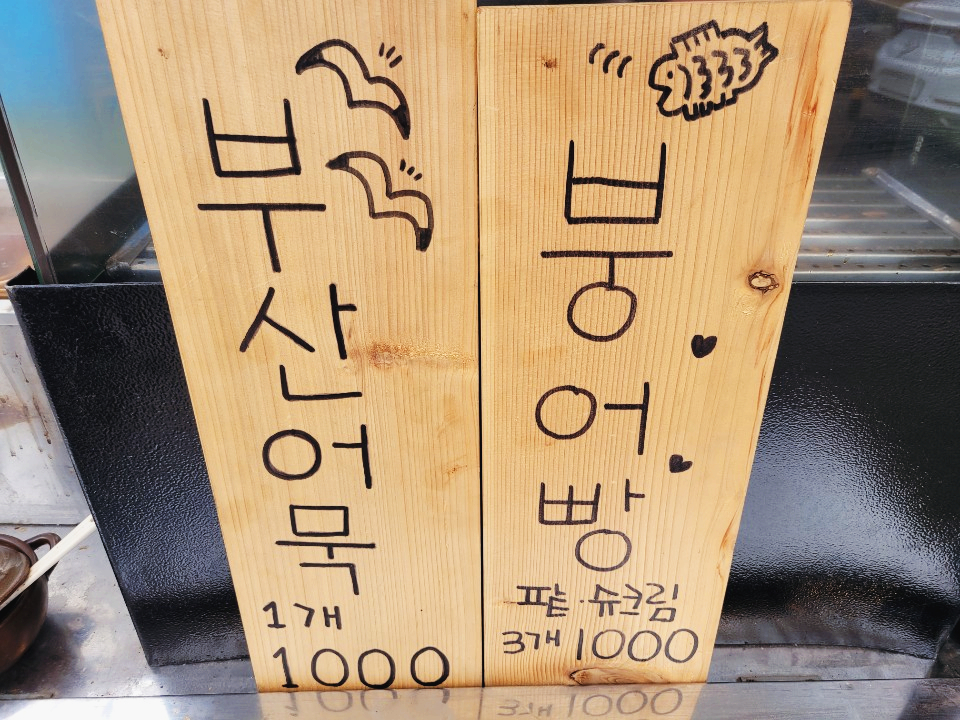 부산어묵
1개
1000
붕어빵
팥·슈크림
3개 1000
3개 1000